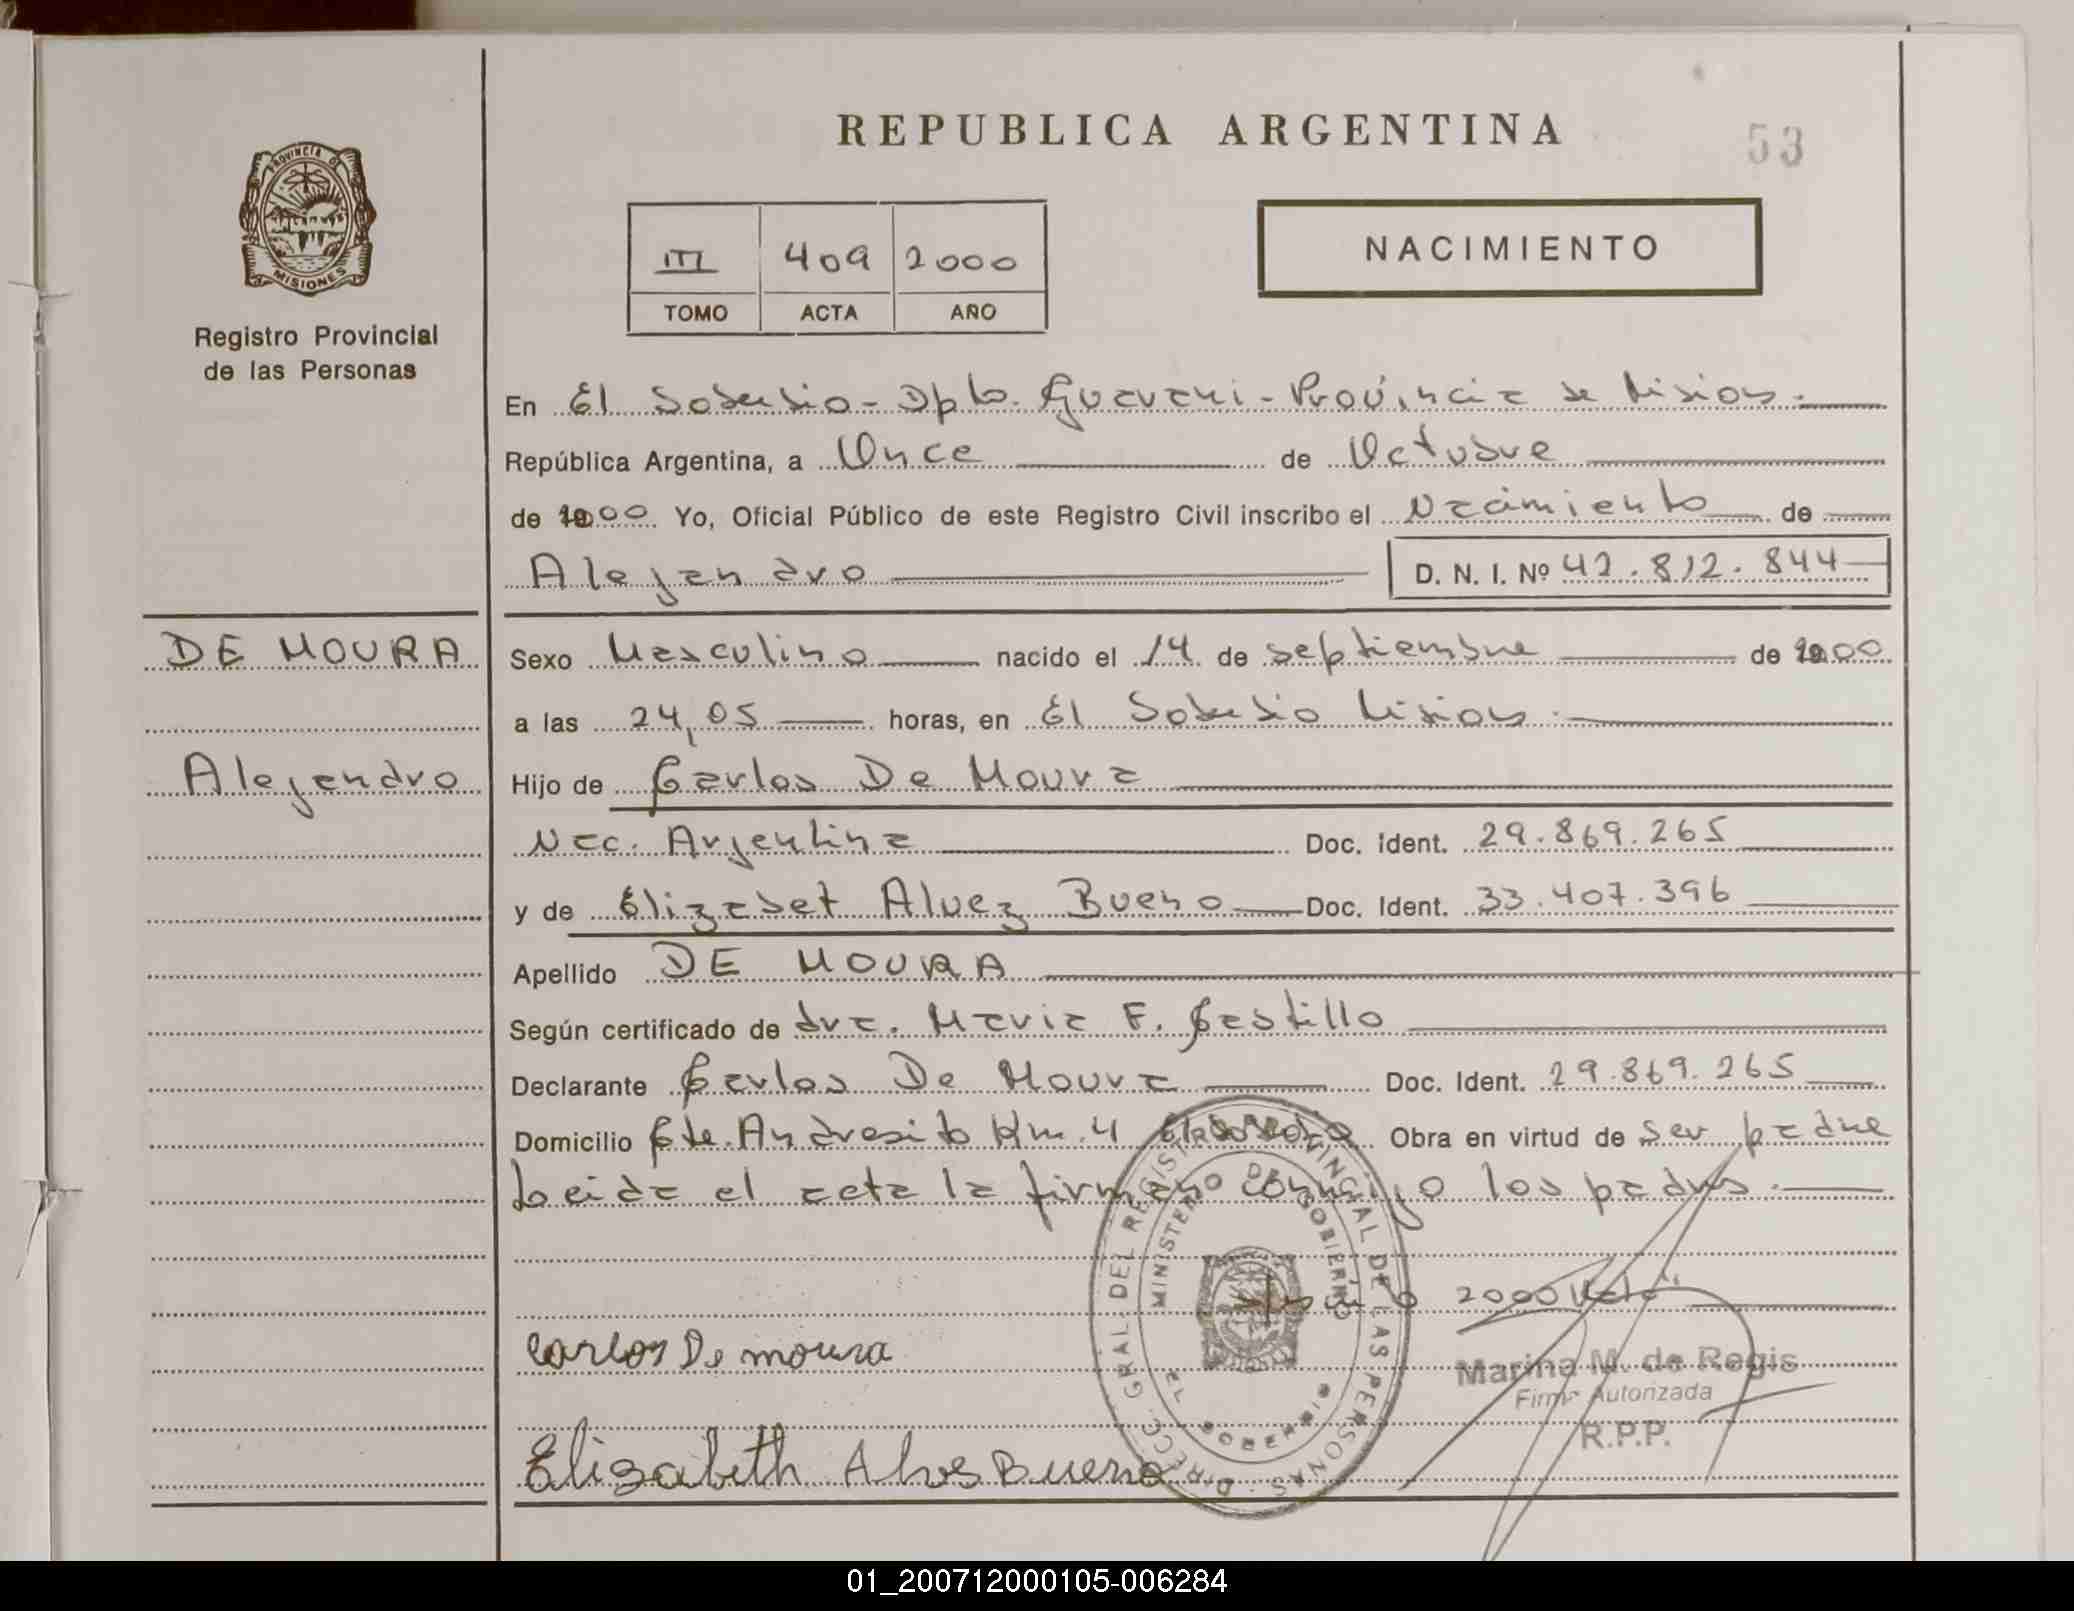 REPUBLICA ARGENTINA
53
PROVINCIA DE
MISIONES
Registro Provincial
de las Personas
III 409 2000
TOMO ACTA AÑO
NACIMIENTO
En El Soberbio - Dpto. Guarani - Provincia de Misiones.
República Argentina, a Once de Octubre
de 2000 Yo, Oficial Público de este Registro Civil inscribo el Nacimiento de
Alejandro D. N. I. Nº 42.812.844
DE MOURA
Sexo Masculino nacido el 14 de septiembre de 2000
a las 24,05 horas, en El Soberbio Misiones.
Alejandro
Hijo de Carlos De Moura
Nac. Argentina Doc. Ident. 29.869.265
y de Elizabet Alvez Bueno Doc. Ident. 33.407.396
Apellido DE MOURA
Según certificado de dra. Maria F. Castillo
Declarante Carlos De Moura Doc. Ident. 29.869.265
Domicilio Cte. Andresito Km. 4 El Soberbio Obra en virtud de ser padre
Leida el acta la firman conmigo los padres.
2000 Vale
Carlos De moura
Marina M. de Regis
Firma Autorizada
R.P.P.
Elizabeth Alves Bueno
DIRECC. GRAL. DEL REGISTRO PROVINCIAL DE LAS PERSONAS
MINISTERIO DE GOBIERNO
SOBERBIO
01_200712000105-006284